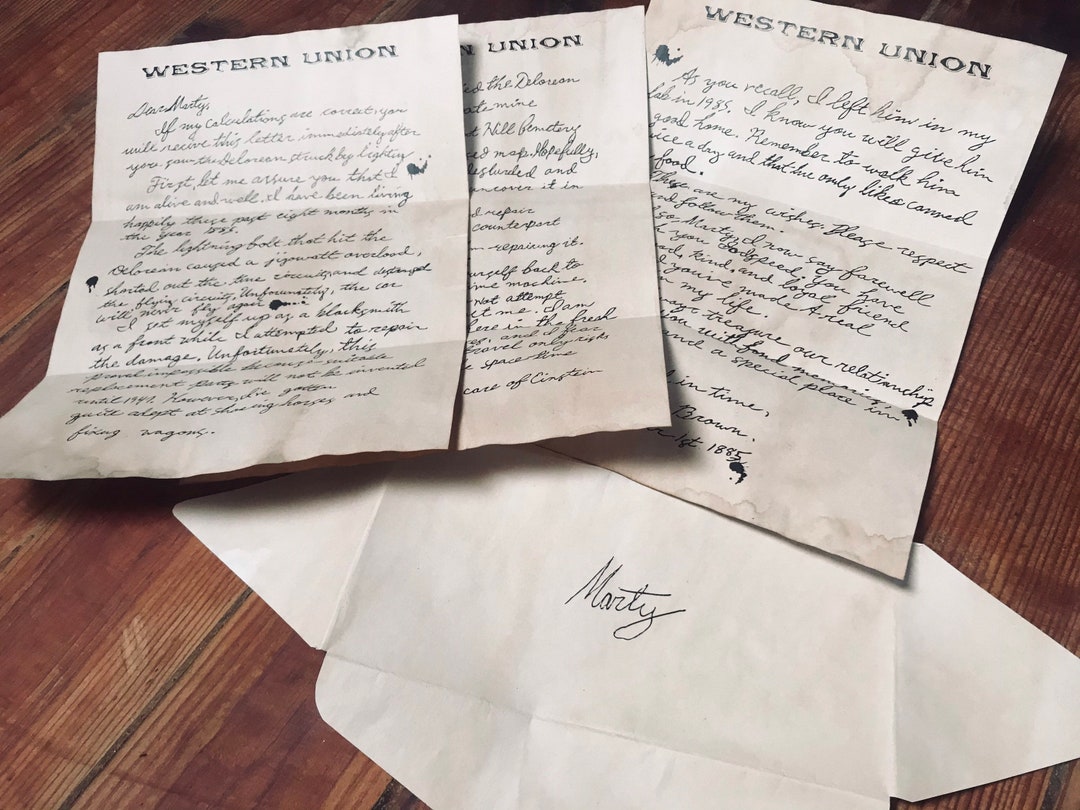 WESTERN UNION
Dear Marty,
If my calculations are correct, you
will recive this letter immediately after
you saw the Delorean struck by lightning
First, let me assure you that I
am alive and well. I have been living
happily these past eight months in
the year 1885.
The lightning bolt that hit the
Delorean caused a jigowatt overload,
shorted out the time circuits, and destroyed
the flying circuits. Unforunately, the car
will never fly again
I set myself up as a blacksmith
as a front while I attempted to repair
the damage. Unfortunately, this
proved impossible because suitable
replacement parts will not be invented
until 1947. However, I've gotten
quite adept at shoeing horses and
fixing wagons..
N UNION
the Delorean
mine
Hill Cemetery
map. Hopefully,
and
uncover it in
repair
counterpart
repairing it.
yourself back to
time machine.
not attempt
me. I am
here in the fresh
and I fear
travel only risks
space time
care of Einstein
WESTERN UNION
As you recall, I left him in my
lab in 1985. I know you will give him
good home. Remember to walk him
a day and that he only likes canned
food.
These are my wishes. Please respect
and follow them.
so Marty, I now say farewell
you Godspeed. You have
kind, and loyal friend
you've made A real
my life.
treasure our relationship
with fond memories
and a special place in
in time,
Brown.
1st 1885
Marty